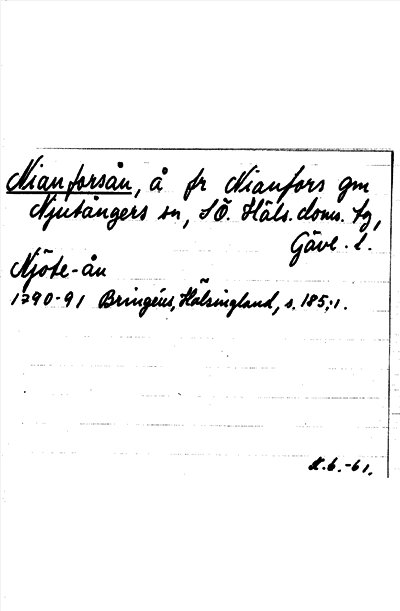 Nianforsån, å fr Nianfors gm
Njutångers sn, SÖ. Häls. doms. tg,
Gävl. l.
Njöte-ån
1790-91 Bringéus, Hälsingland, s. 185:1.
K.b.-61.